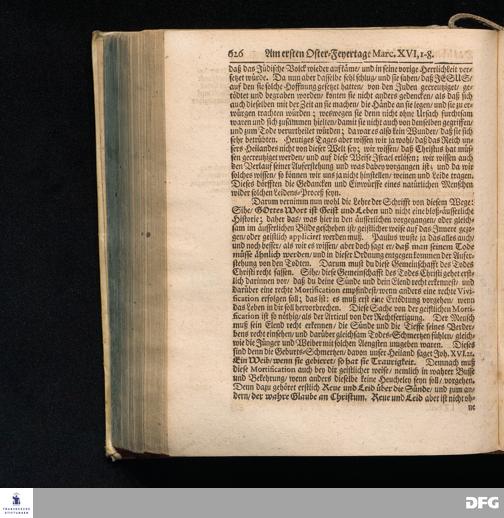 626 Am ersten Oster-Feyertage Marc. XVI, 1-8.
daß das Jüdische Volck wieder aufkäme/ und in seine vorige Herrlichkeit ver-
setzet würde. Da nun aber dasselbe fehl schlug/ und sie sahen/ daß JESUS/
auf den sie solche Hoffnung gesetzet hatten/ von den Juden gecreutziget/ ge-
tödtet und begraben worden/ konten sie nicht anders gedencken/ als daß sich
auch dieselben mit der Zeit an sie machen/ die Hände an sie legen/ und sie zu er-
würgen trachten würden; weswegen sie denn nicht ohne Ursach furchtsam
waren und sich zusammen hielten/ damit sie nicht auch von denselben gegriffen/
und zum Tode verurtheilet würden; da war es also kein Wunder/ daß sie sich
sehr betrübten. Heutiges Tages aber wissen wir ja wohl/ daß das Reich un-
sers Heilandes nicht von dieser Welt sey; wir wissen/ daß Christus hat müs-
sen gecreutziget werden/ und auf diese Weise Israel erlösen; wir wissen auch
den Verlauf seiner Auferstehung und was dabey vorgangen ist; und da wir
solches wissen/ so können wir uns ja nicht hinstellen/ weinen und Leide tragen.
Dieses dörfften die Gedancken und Einwürffe eines natürlichen Menschen
wider solchen Leidens-Proceß seyn.
Darum vernimm nun wohl die Lehre der Schrifft von diesem Wege:
Sihe/ GOttes Wort ist Geist und Leben und nicht eine bloß-äusserliche
Historie; daher das/ was hier in den äusserlichen vorgegangen/ aber gleich-
sam im äusserlichen Bilde geschehen ist/ geistlicher weise auf das Innere gezo-
gen/ oder geistlich appliciret werden muß. Paulus wuste ja das alles auch/
und noch besser/ als wir es wissen/ aber doch sagt er/ daß man seinem Tode
müsse ähnlich werden/ und in dieser Ordnung entgegen kommen der Aufer-
stehung von den Todten. Darum must du diese Gemeinschafft des Todes
Christi recht fassen. Sihe/ diese Gemeinschafft des Todes Christi gehet erst-
lich darinnen vor/ daß du deine Sünde und dein Elend recht erkennest/ und
darüber eine rechte Mortification empfindest/ wenn anders eine rechte Vivi-
fication erfolgen soll; das ist: es muß erst eine Ertödtung vorgehen/ wenn
das Leben in dir soll hervorbrechen. Diese Sache von der geistlichen Morti-
fication ist so nöthig/ als der Articul von der Rechtfertigung. Der Mensch
muß sein Elend recht erkennen/ die Sünde und die Tieffe seines Verder-
bens recht einsehen/ und darüber gleichsam Todes-Schmertzen fühlen/ gleich-
wie die Jünger und Weiber mit solchen Aengsten umgeben waren. Dieses
sind denn die Geburts-Schmertzen/ davon unser Heiland saget Joh. XVI, 21.
Ein Weib/ wenn sie gebieret/ so hat sie Traurigkeit. Demnach muß
diese Mortification auch bey dir geistlicher weise/ nemlich in wahrer Busse
und Bekehrung/ wenn anders dieselbe keine Heucheley seyn soll/ vorgehen.
Denn dazu gehöret erstlich Reue und Leid über die Sünde/ und zum an-
dern/ der wahre Glaube an Christum. Reue und Leid aber ist nicht oh-
ne
FRANCKESCHE
STIFTUNGEN
DFG